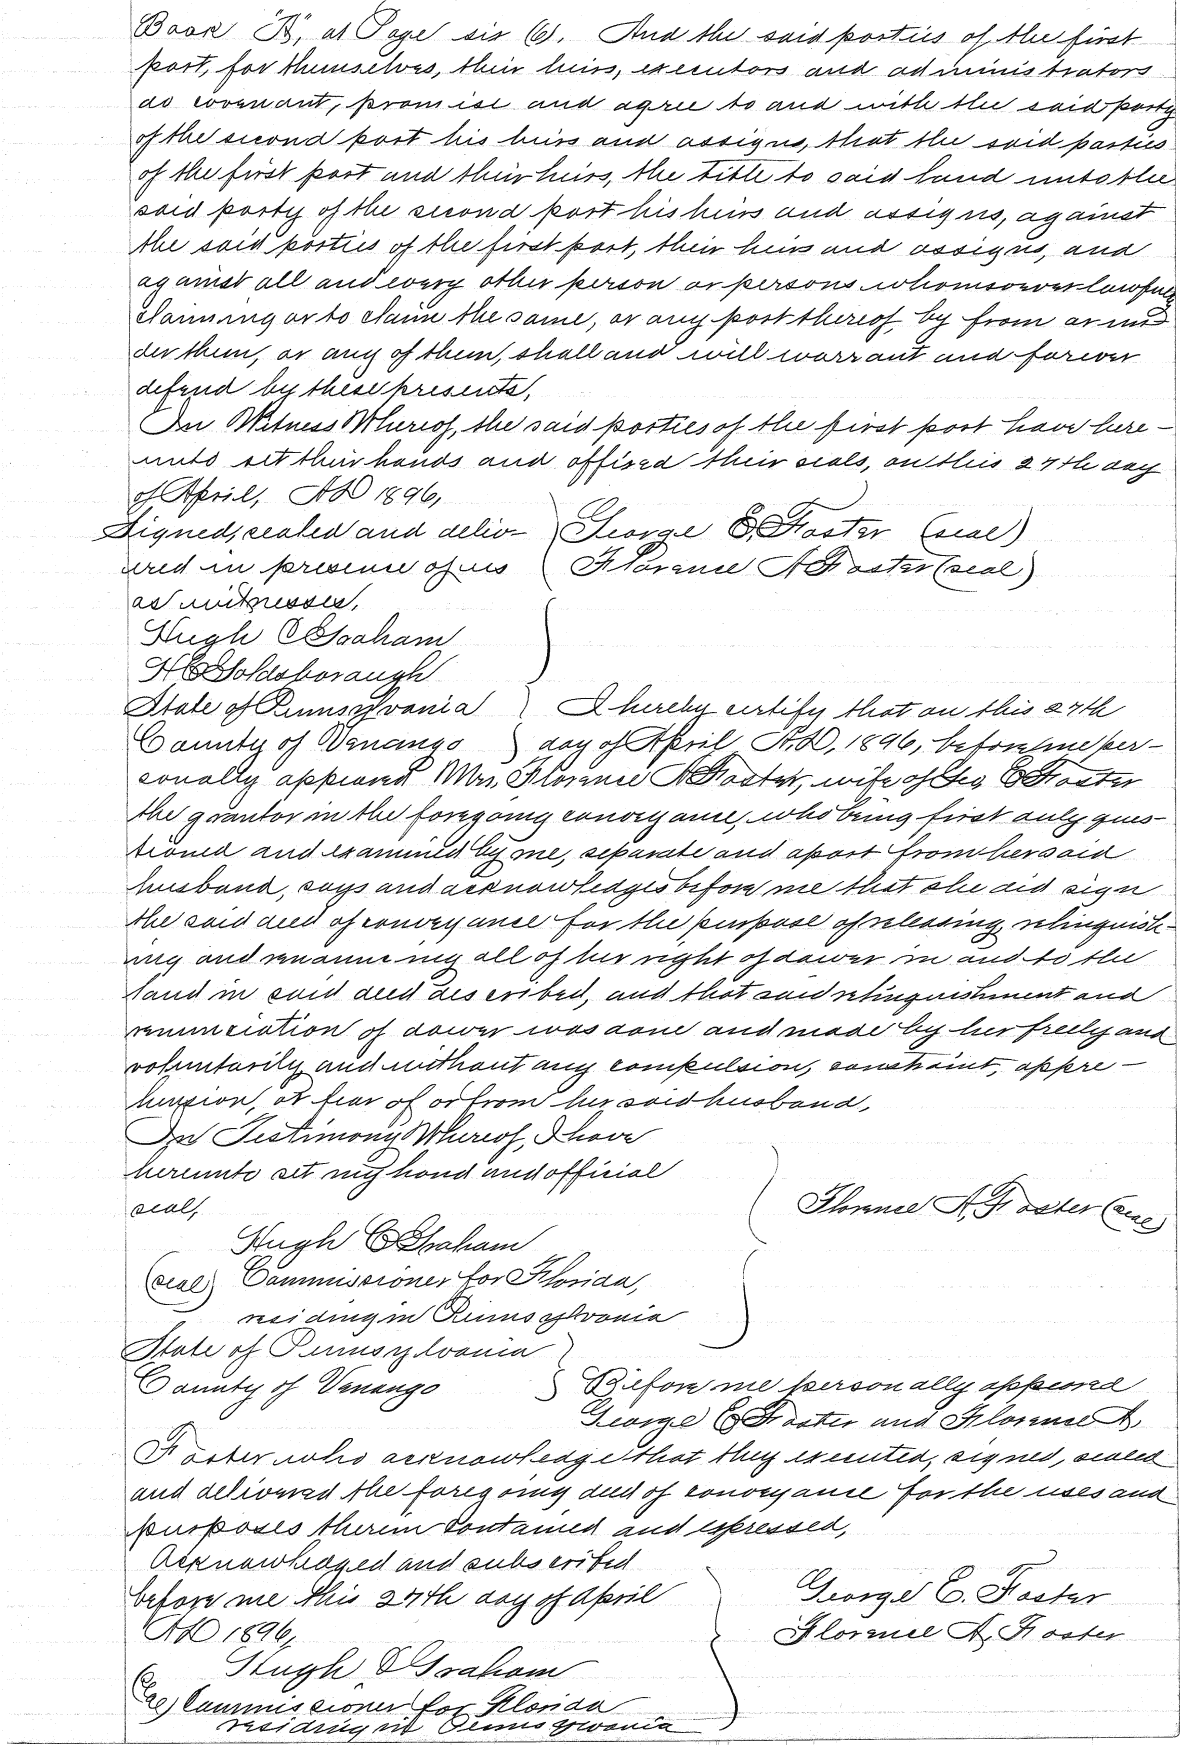 Book "B", at Page six (6). And the said parties of the first
part, for themselves, their heirs, executors and administrators
do covenant, promise and agree to and with the said party
of the second part his heirs and assigns, that the said parties
of the first part and their heirs, the title to said land unto the
said party of the second part his heirs and assigns, against
the said parties of the first part, their heirs and assigns, and
against all and every other person or persons whomsoever lawfully
claiming or to claim the same, or any part thereof, by from or un
der them, or any of them, shall and will warrant and forever
defend by these presents,
In Witness Whereof, the said parties of the first part have here-
unto set their hands and affixed their seals, on this 27th day
of April, AD 1896,
Signed, sealed and deliv- George E. Foster (seal)
ered in presence of us Florence A Foster (seal)
as witnesses,
Hugh C Graham
H C Goldsborough
State of Pennsylvania I hereby certify that on this 27th
County of Venango day of April A.D, 1896, before me per-
sonally appeared Mrs, Florence A Foster, wife of Geo E Foster
the grantor in the foregoing conveyance, who being first duly ques-
tioned and examined by me, separate and apart from her said
husband, says and acknowledges before me that she did sign
the said deed of conveyance for the purpose of releasing, relinquish-
ing and renouncing all of her right of dower in and to the
land in said deed described, and that said relinquishment and
renunciation of dower was done and made by her freely and
voluntarily and without any compulsion, constraint, appre-
hension, or fear of or from her said husband,
In Testimony Whereof, I have
hereunto set my hand and official
seal, Florence A. Foster (seal)
Hugh C Graham
(seal) Commissioner for Florida,
residing in Pennsylvania
State of Pennsylvania
County of Venango Before me personally appeared
George E Foster and Florence A
Foster who acknowledge that they executed, signed, sealed
and delivered the foregoing deed of conveyance for the uses and
purposes therein contained and expressed,
Acknowledged and subscribed
before me this 27th day of April George E. Foster
AD 1896, Florence A, Foster
Hugh C Graham
Commissioner for Florida
residing in Pennsylvania